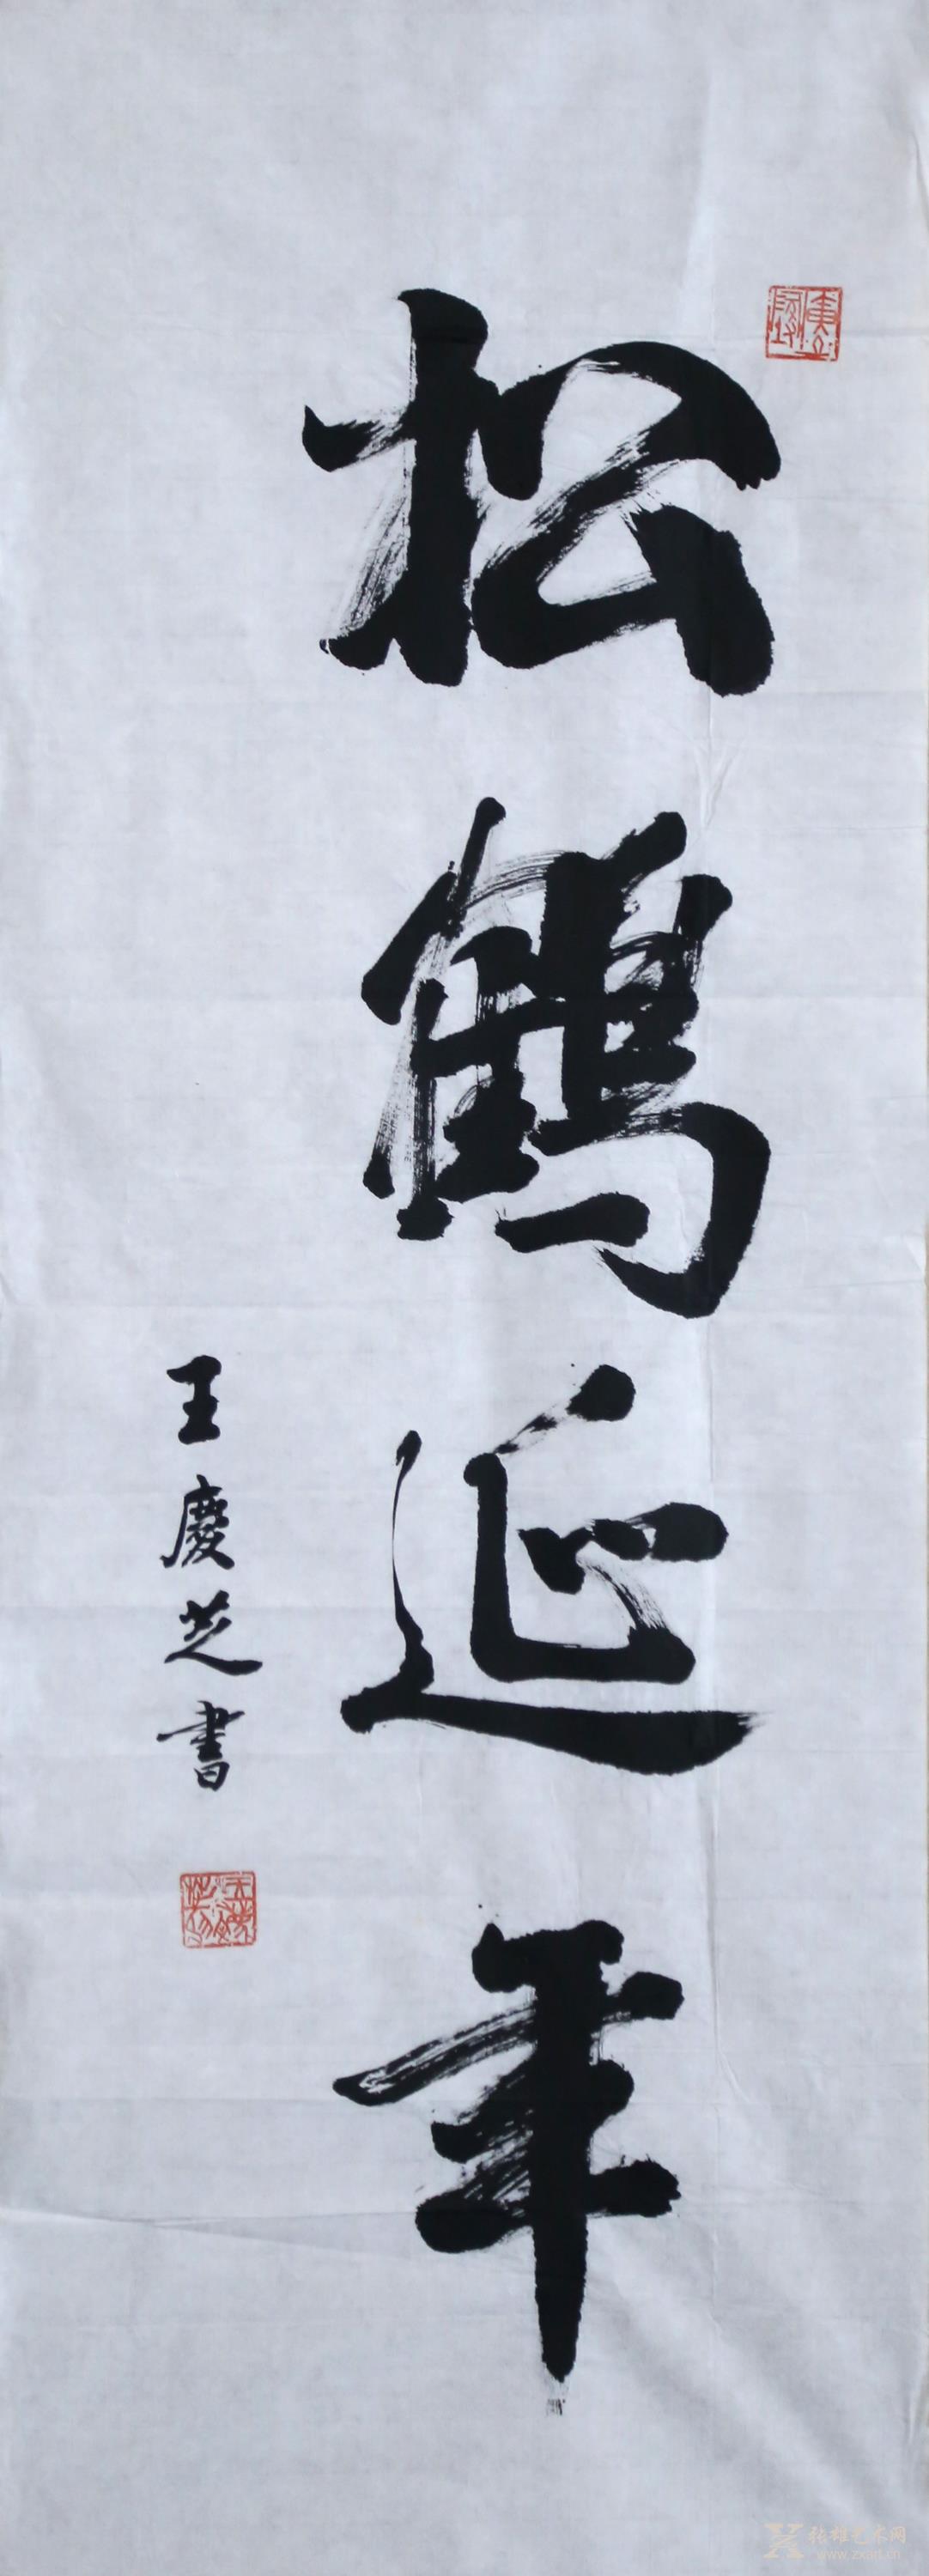 松鶴延年
王慶芝書
张雄艺术网
www.zxart.cn